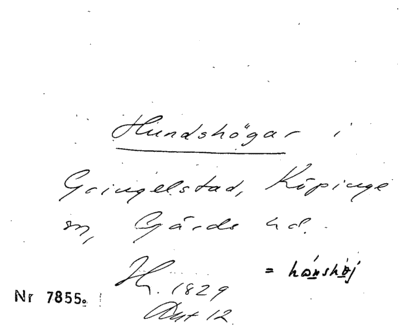 Hundshögar i
Gringelstad, Köpinge
sn, Gärds hd.
H. 1829 = hónshǿj
Nr 7855.
Akt 12